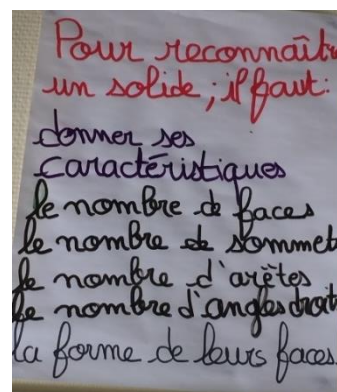 Pour reconnaîtr
un solide, il faut:
donner ses
caractéristiques
le nombre de faces
le nombre de sommet
le nombre d'arêtes
le nombre d'angles droit
la forme de leurs faces.